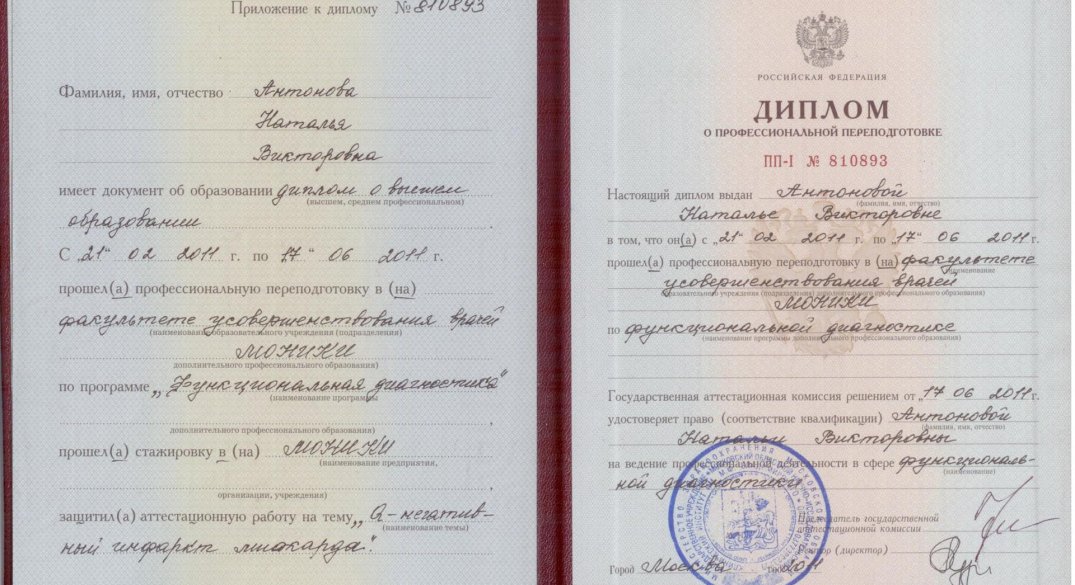 Приложение к диплому № 810893
Фамилия, имя, отчество Антонова
Наталья
Викторовна
имеет документ об образовании диплом о высшем
(высшем, среднем профессиональном)
образовании
С „21“ 02 2011 г. по „17“ 06 2011 г.
прошел(а) профессиональную переподготовку в (на)
факультете усовершенствования врачей
(наименование образовательного учреждения (подразделения)
МОНИКИ
дополнительного профессионального образования)
по программе „Функциональная диагностика“
(наименование программы
дополнительного профессионального образования)
прошел(а) стажировку в (на) МОНИКИ
(наименование предприятия,
организации, учреждения)
защитил(а) аттестационную работу на тему „Q-негатив-
(наименование темы)
ный инфаркт миокарда“.
РОССИЙСКАЯ ФЕДЕРАЦИЯ
ДИПЛОМ
О ПРОФЕССИОНАЛЬНОЙ ПЕРЕПОДГОТОВКЕ
ПП-I № 810893
Настоящий диплом выдан Антоновой
(фамилия, имя, отчество)
Наталье Викторовне
в том, что он(а) с „21“ 02 2011 г. по „17“ 06 2011 г.
прошел(а) профессиональную переподготовку в (на) факультете
(наименование
усовершенствования врачей
образовательного учреждения (подразделения) дополнительного профессионального образования)
МОНИКИ
по функциональной диагностике
(наименование программы дополнительного профессионального образования)
Государственная аттестационная комиссия решением от „17“ 06 2011 г.
удостоверяет право (соответствие квалификации) Антоновой
(фамилия, имя, отчество)
Натальи Викторовны
на ведение профессиональной деятельности в сфере функциональ-
(наименование)
ной диагностики
Председатель государственной
аттестационной комиссии
Ректор (директор)
Город Москва 2011